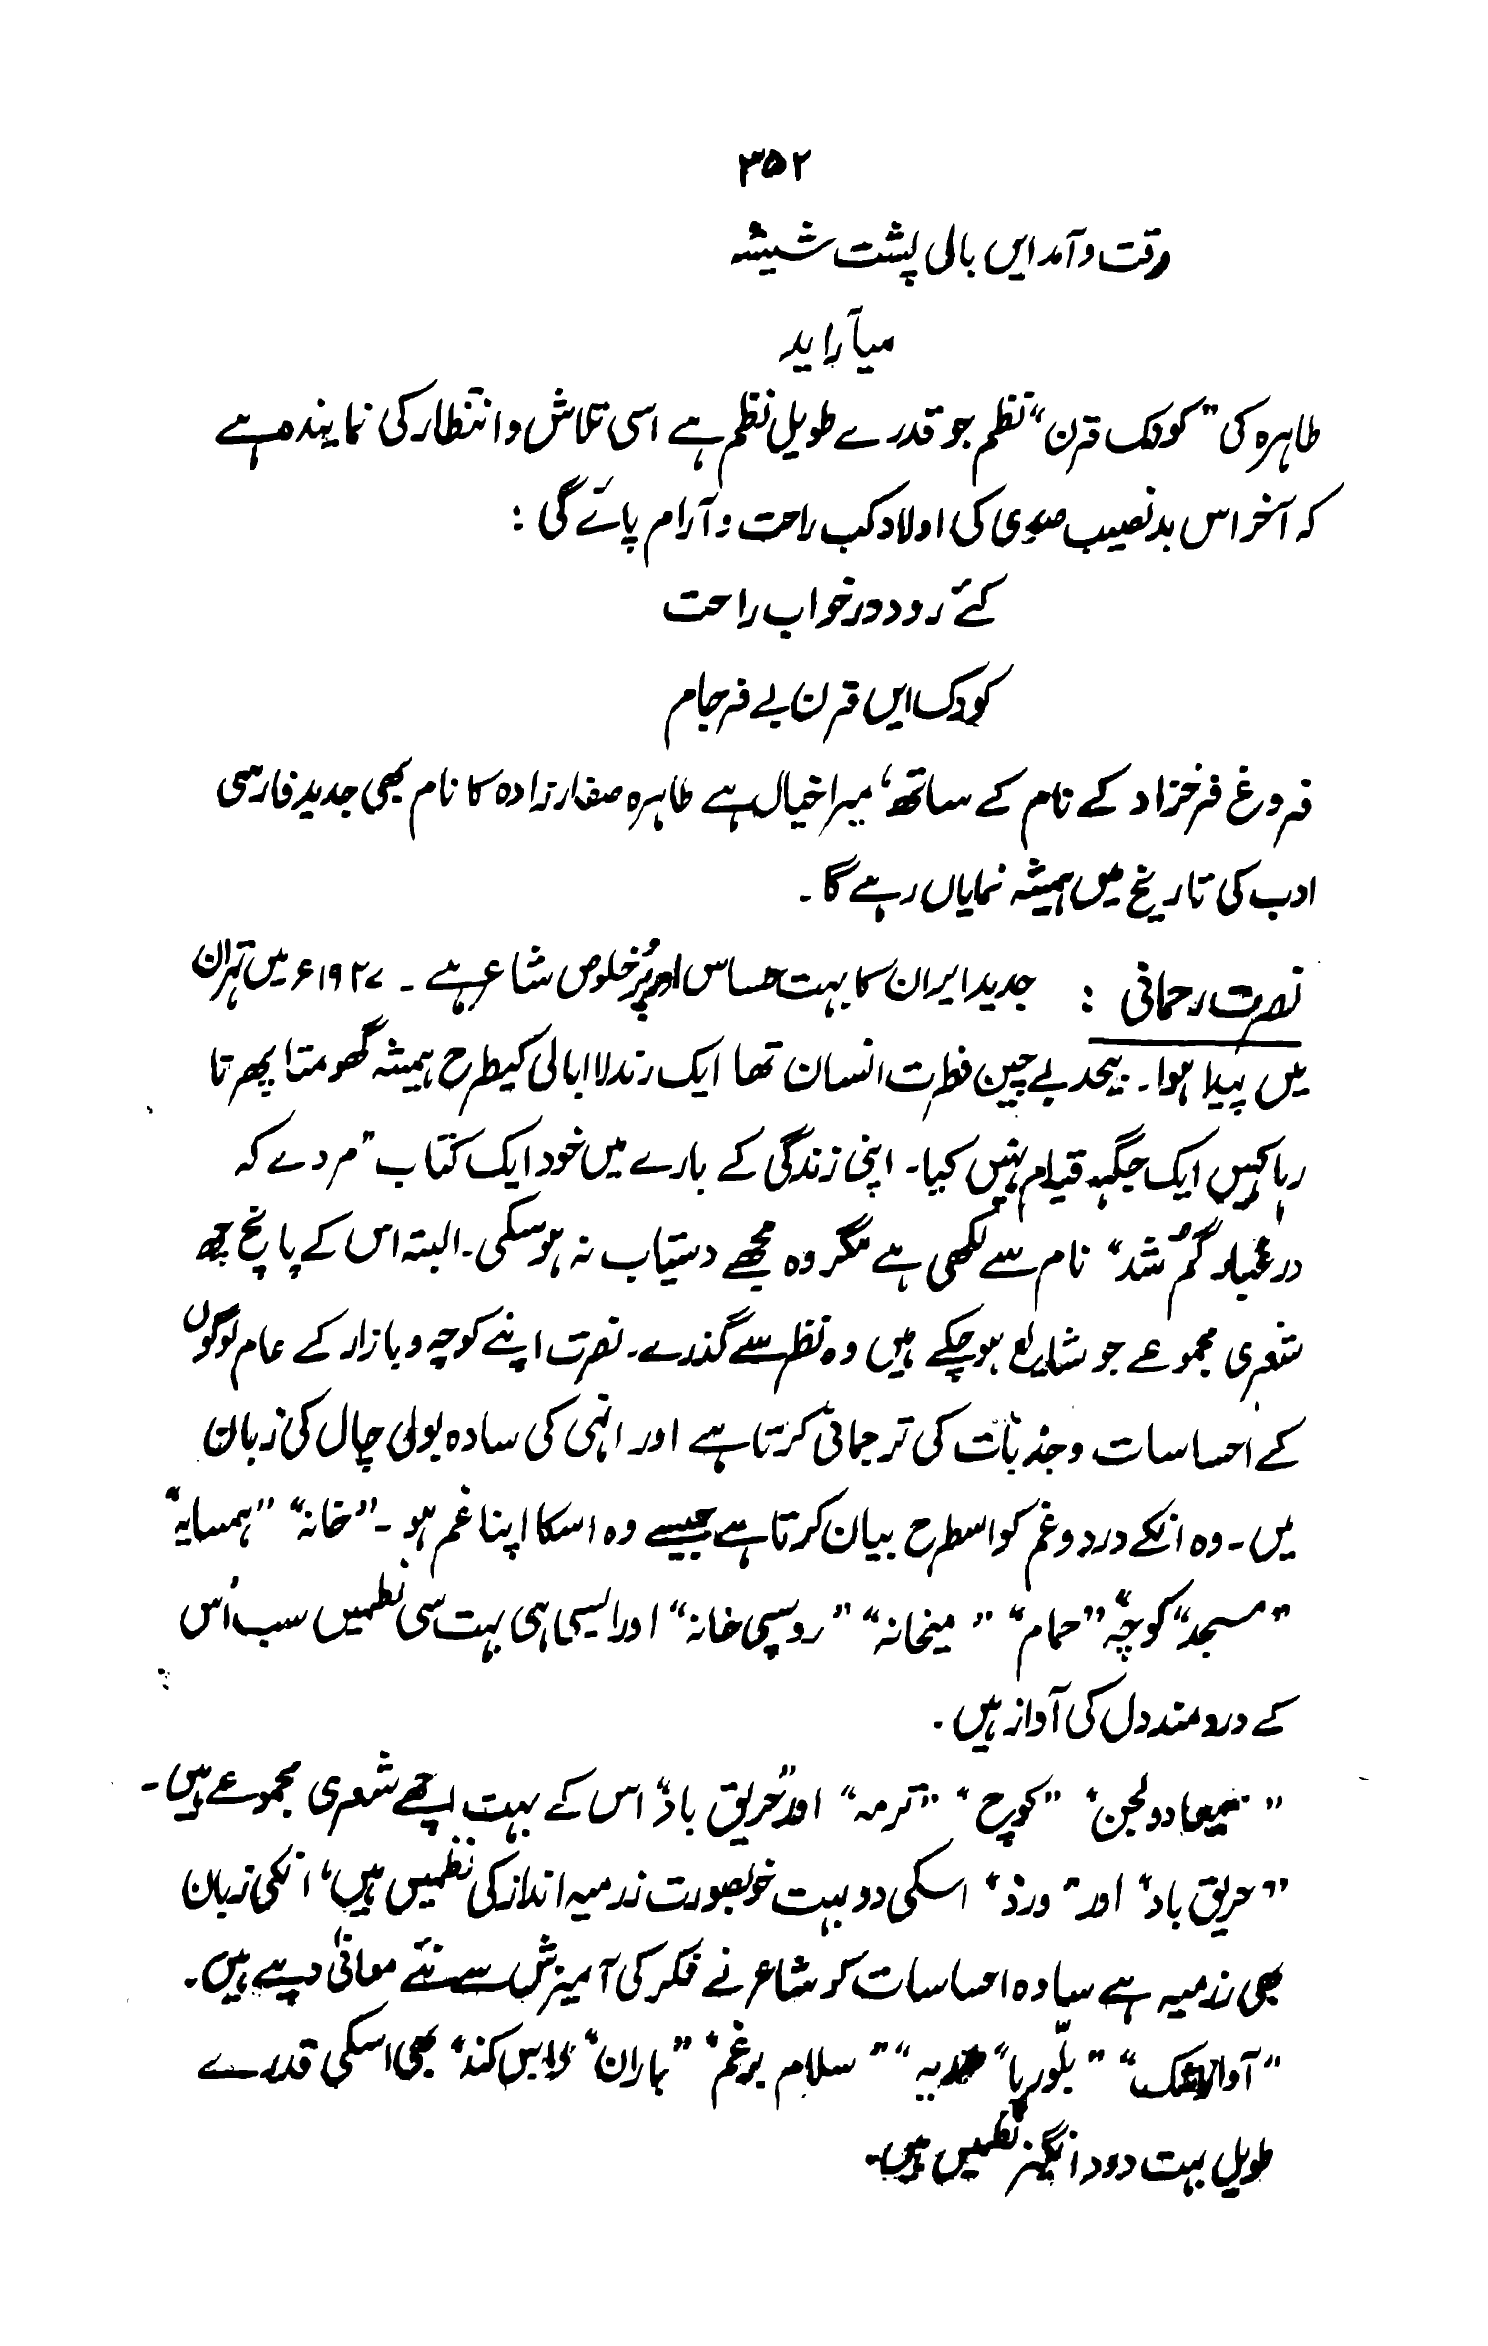 ۳۵۲
رقت و آمد ایں بالی پشت شیشہ
میآراید
طاہرہ کی "کودک قرن" نظم جو قدرے طویل نظم ہے اسی تلاش و انتظار کی نمایندہ ہے
کہ آخر اس بدنصیب صدی کی اولاد کب راحت و آرام پائے گی :
کئے رود در خواب راحت
کودک ایں قرن بے فرجام
فروغ فرخزاد کے نام کے ساتھ، میرا خیال ہے طاہرہ صفارزادہ کا نام بھی جدید فارسی
ادب کی تاریخ میں ہمیشہ نمایاں رہے گا ۔
نصرت رحمانی : جدید ایران کا بہت حساس اور پُرخلوص شاعر ہے ۔ ۱۹۲۷ء میں تہران
میں پیدا ہوا ۔ بیحد بے چین فطرت انسان تھا ایک رند لا ابالی کیطرح ہمیشہ گھومتا پھرتا
رہا کہیں ایک جگہہ قیام نہیں کیا ۔ اپنی زندگی کے بارے میں خود ایک کتاب "مردے کہ
در غبار گُم شد" نام سے لکھی ہے مگر وہ مجھے دستیاب نہ ہوسکی ۔ البتہ اس کے پانچ چھ
شعری مجموعے جو شایع ہوچکے ہیں وہ نظر سے گذرے ۔ نصرت اپنے کوچہ و بازار کے عام لوگوں
کے احساسات و جذبات کی ترجمانی کرتا ہے اور انہی کی سادہ بولی چال کی زبان
میں ۔ وہ انکے درد و غم کو اسطرح بیان کرتا ہے جیسے وہ اسکا اپنا غم ہو ۔ "خانہ" "ہمسایہ"
"مسجد" کوچہ" "حمام" "میخانہ" "روسپی خانہ" اور ایسی ہی بہت سی نظمیں سب اُس
کے دردمند دل کی آواز ہیں ۔
"میعاد و لجن" "کوچ" "ترمہ" اور "حریق باد" اس کے بہت اچھے شعری مجموعے ہیں ۔
"حریق باد" اور "ورد" اسکی دو بہت خوبصورت رزمیہ انداز کی نظمیں ہیں، انکی زبان
بھی رزمیہ ہے سادہ احساسات کو شاعر نے فکر کی آمیزش سے نئے معانی دیے ہیں ۔
"بلّور یا" "سلام بر غم" "باران" بھی اسکی قدرے
طویل بہت درد انگیز نظمیں ہیں ۔